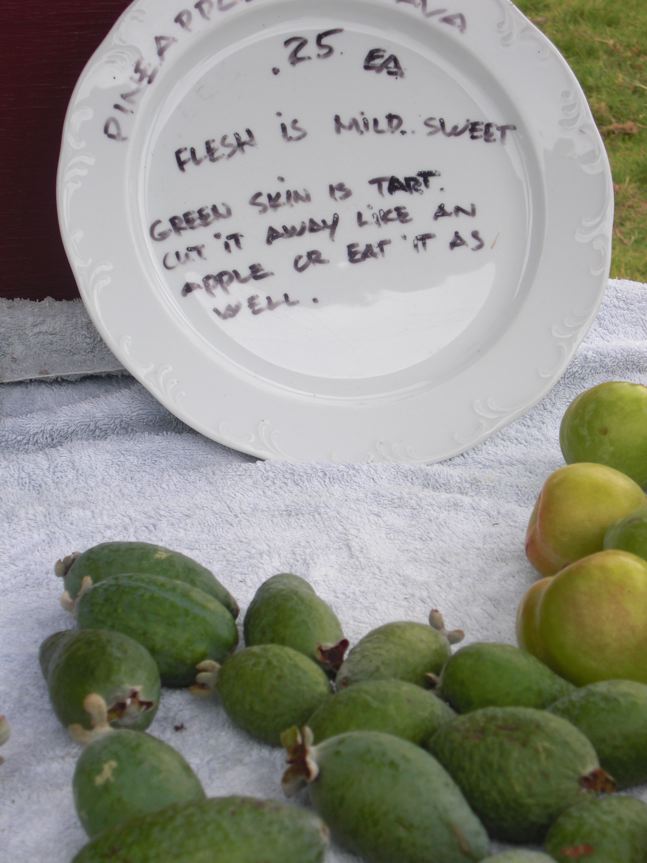 PINEAPPLE
.25 EA
FLESH IS MILD.. SWEET
GREEN SKIN IS TART.
CUT IT AWAY LIKE AN
APPLE OR EAT IT AS
WELL.